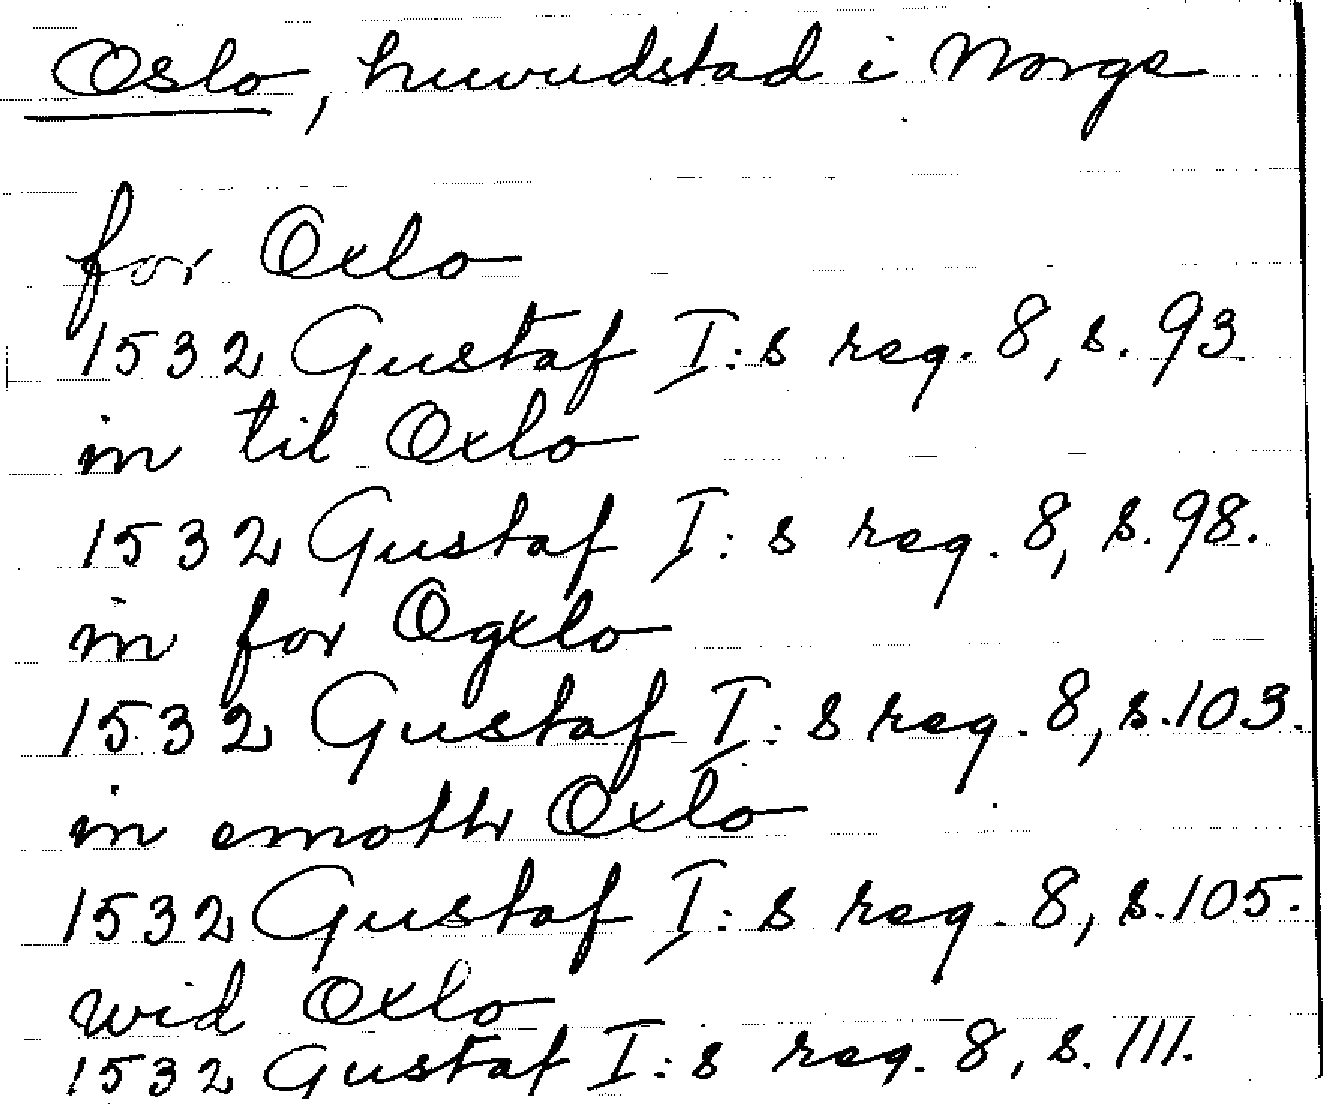 Oslo, huvudstad i Norge
for Oxlo
1532 Gustaf I:s reg. 8, s. 93
in til Oxlo
1532 Gustaf I:s reg. 8, s. 98.
in for Ogxlo
1532 Gustaf I:s reg. 8, s. 103.
in emoth Oxlo
1532 Gustaf I:s reg. 8, s. 105.
wid Oxlo
1532 Gustaf I:s reg. 8, s. 111.